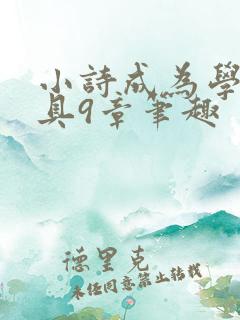 小詩成為學
具9章筆趣
德里克
未经同意禁止转载